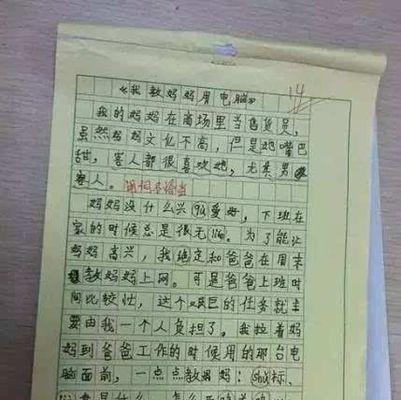 《我教妈妈用电脑》
14
我的妈妈在商场里当售货员,
虽然妈妈文化不高,但是她嘴巴
甜,客人都很喜欢她,尤其男
客人。用词不恰当
妈妈没什么兴(qù)爱好,下班在
家的时候总是很无(liáo)。为了能让
妈妈高兴,我决定和爸爸在周末
教妈妈上网。可是爸爸上班时
间比较忙,这个艰巨的任务就主
要由我一个人负担了。我拉着妈
妈到爸爸工作的时候用的那台电
脑面前,一点点教妈妈:(shǔ)标、